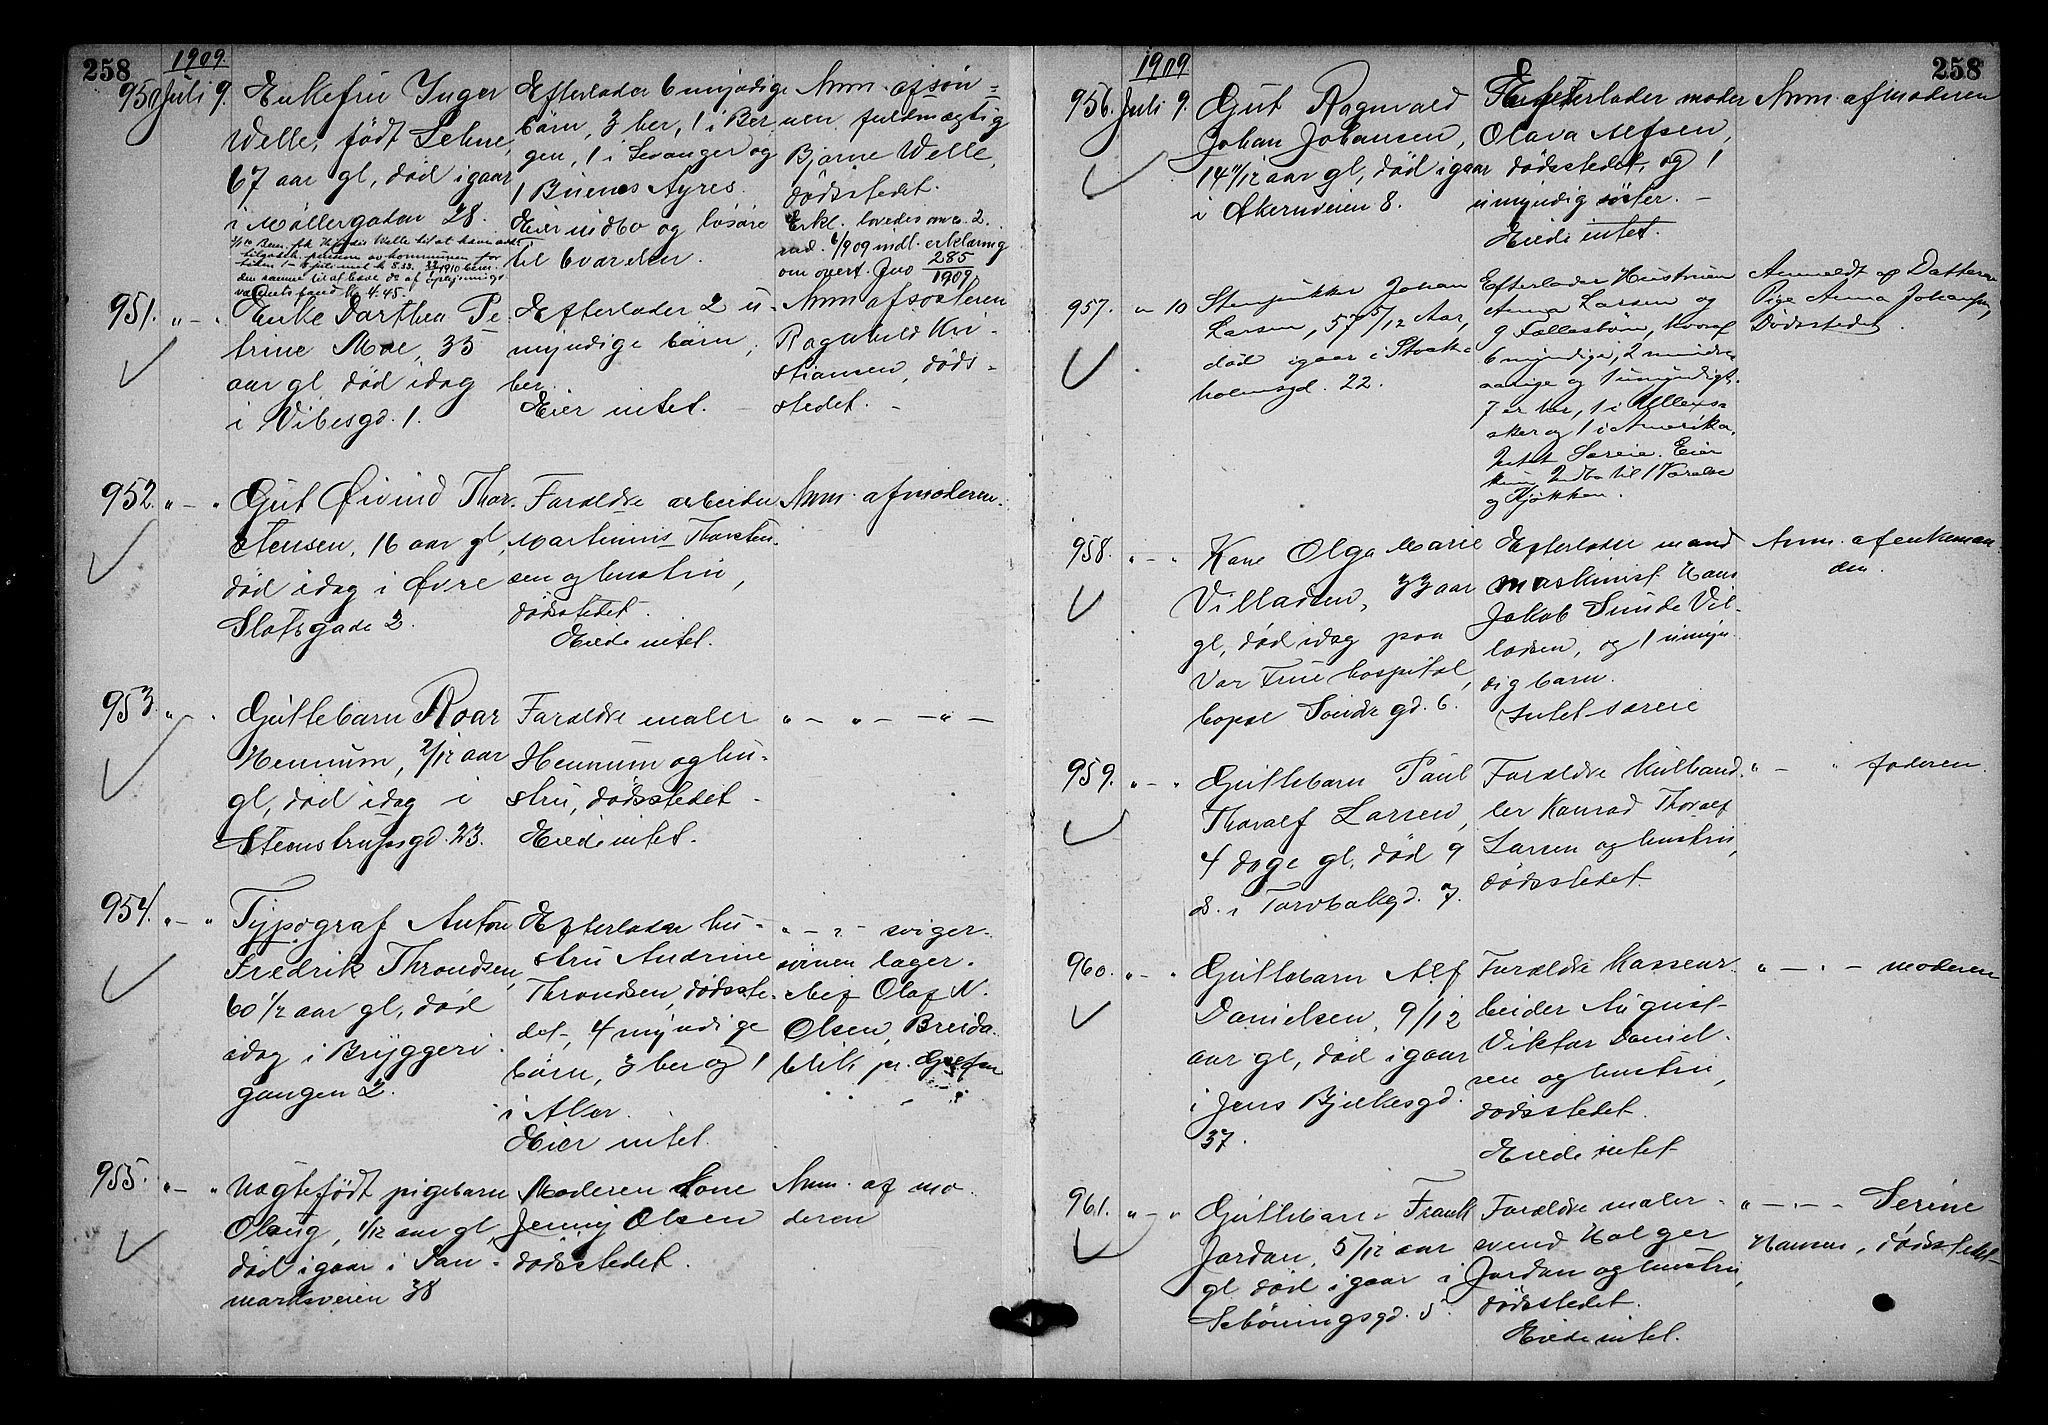 258
1909.
950 Juli 9. Enkefru Inger
Welle, født Lehne,
67 aar gl, død igaar
i Møllergaden 28.
Efterlader 6 myndige
børn, 3 her, 1 i Ber
gen, 1 i Levanger og
1 Buenos Ayres.
Eier indbo og løsøre
til 6 værelser.
Anm. af søn =
nen fuldmægtig
Bjarne Welle,
dødsstedet.
Erkl. lovedes om ca. 2.
6/9 09 mdl. erklæring
om overt. Jno 285/1909
951. " - " Enke Darthea Pe
trine Moe, 35
aar gl, død idag
i Vibesgd. 1.
Efterlader 2 u-
myndige børn,
her.
Eier intet.
Anm af søsteren
Ragnhild Kri-
stiansen, døds-
stedet. -
952. " - " Gut Øivind Thor-
stensen, 16 aar gl,
død idag i Øvre
Slotsgade 2.
Forældre arbeider
Martinius Thorsten-
sen og hustru,
dødsstedet.
Eiede intet.
Anm. af moderen.
953. " - " Guttebarn Roar
Hennum, 2/12 aar
gl, død idag i
Stenstrupsgd. 23.
Forældre maler
Hennum og hu-
stru, dødsstedet.
Eiede intet.
" - " - " -
954. " - " Typograf Anton
Fredrik Throndsen,
60 1/2 aar gl, død
idag i Bryggeri-
gangen 2.
Efterlader hu-
stru Andrine
Throndsen, dødsste-
det, 4 myndige
børn, 3 her og 1
i Aker.
Eier intet.
" - " - sviger-
sønnen lager-
chef Olaf N.
Olsen, Breida-
blik pr. Grefsen
955. " - " Uægtefødt pigebarn
Olaug, 1/12 aar gl,
død igaar i Dan-
marksveien 38
Moderen Lone
Jenny Olsen
dødsstedet.
Anm. af mo-
deren
258
1909
956. Juli 9. Gut Ragnvald
Johan Johansen,
14 11/12 aar gl, død igaar
i Akersveien 8.
Efterlader moder
Olava Alfsen,
dødsstedet, og 1
umyndig søster. -
Eiede intet.
Anm. af moderen
957. " 10 Stenpukker Johan
Larsen, 57 5/12 Aar,
død igaar i Stock-
holmsgd. 22.
Efterlader Hustruen
Anna Larsen og
9 Fællesbørn, hvoraf
6 myndige, 2 mindre-
aarige og 1 umyndigt.
7 er her, 1 i Ullens-
aker og 1 i Amerika.
Intet Særeie. Eier
kun Indbo til 1 Værelse
og Kjøkken.
Anmeldt af Datteren
Pige Anna Johansen,
Dødsstedet.
958. " - " Kone Olga Marie
Villadsen, 33 aar
gl, død idag paa
Vor Frue hospital,
bopæl Søndre gd. 6.
Efterlader mand
maskinist Hans
Jakob Sunde Vil-
ladsen, og 1 umyn-
dig barn.
Intet særeie
Anm. af enkeman-
den.
959. " - " Guttebarn Paul
Thoralf Larsen,
4 dage gl, død 9
ds. i Torvbakgd. 7.
Forældre kulhand-
ler Konrad Thoralf
Larsen og hustru,
dødsstedet.
" - " faderen.
960. " - " Guttebarn Alf
Danielsen, 9/12
aar gl, død igaar
i Jens Bjelkesgd.
37.
Forældre kassear-
beider August
Viktor Daniel-
sen og hustru,
dødsstedet.
Eiede intet
" - " - moderen
961. " - " Guttebarn Frank
Jordan, 5/12 aar
gl død igaar i
Schøningsgd. 5.
Forældre maler-
svend Holger
Jordan og hustru,
dødsstedet.
Eiede intet.
" - " - Serine
Hansen, dødsstedet